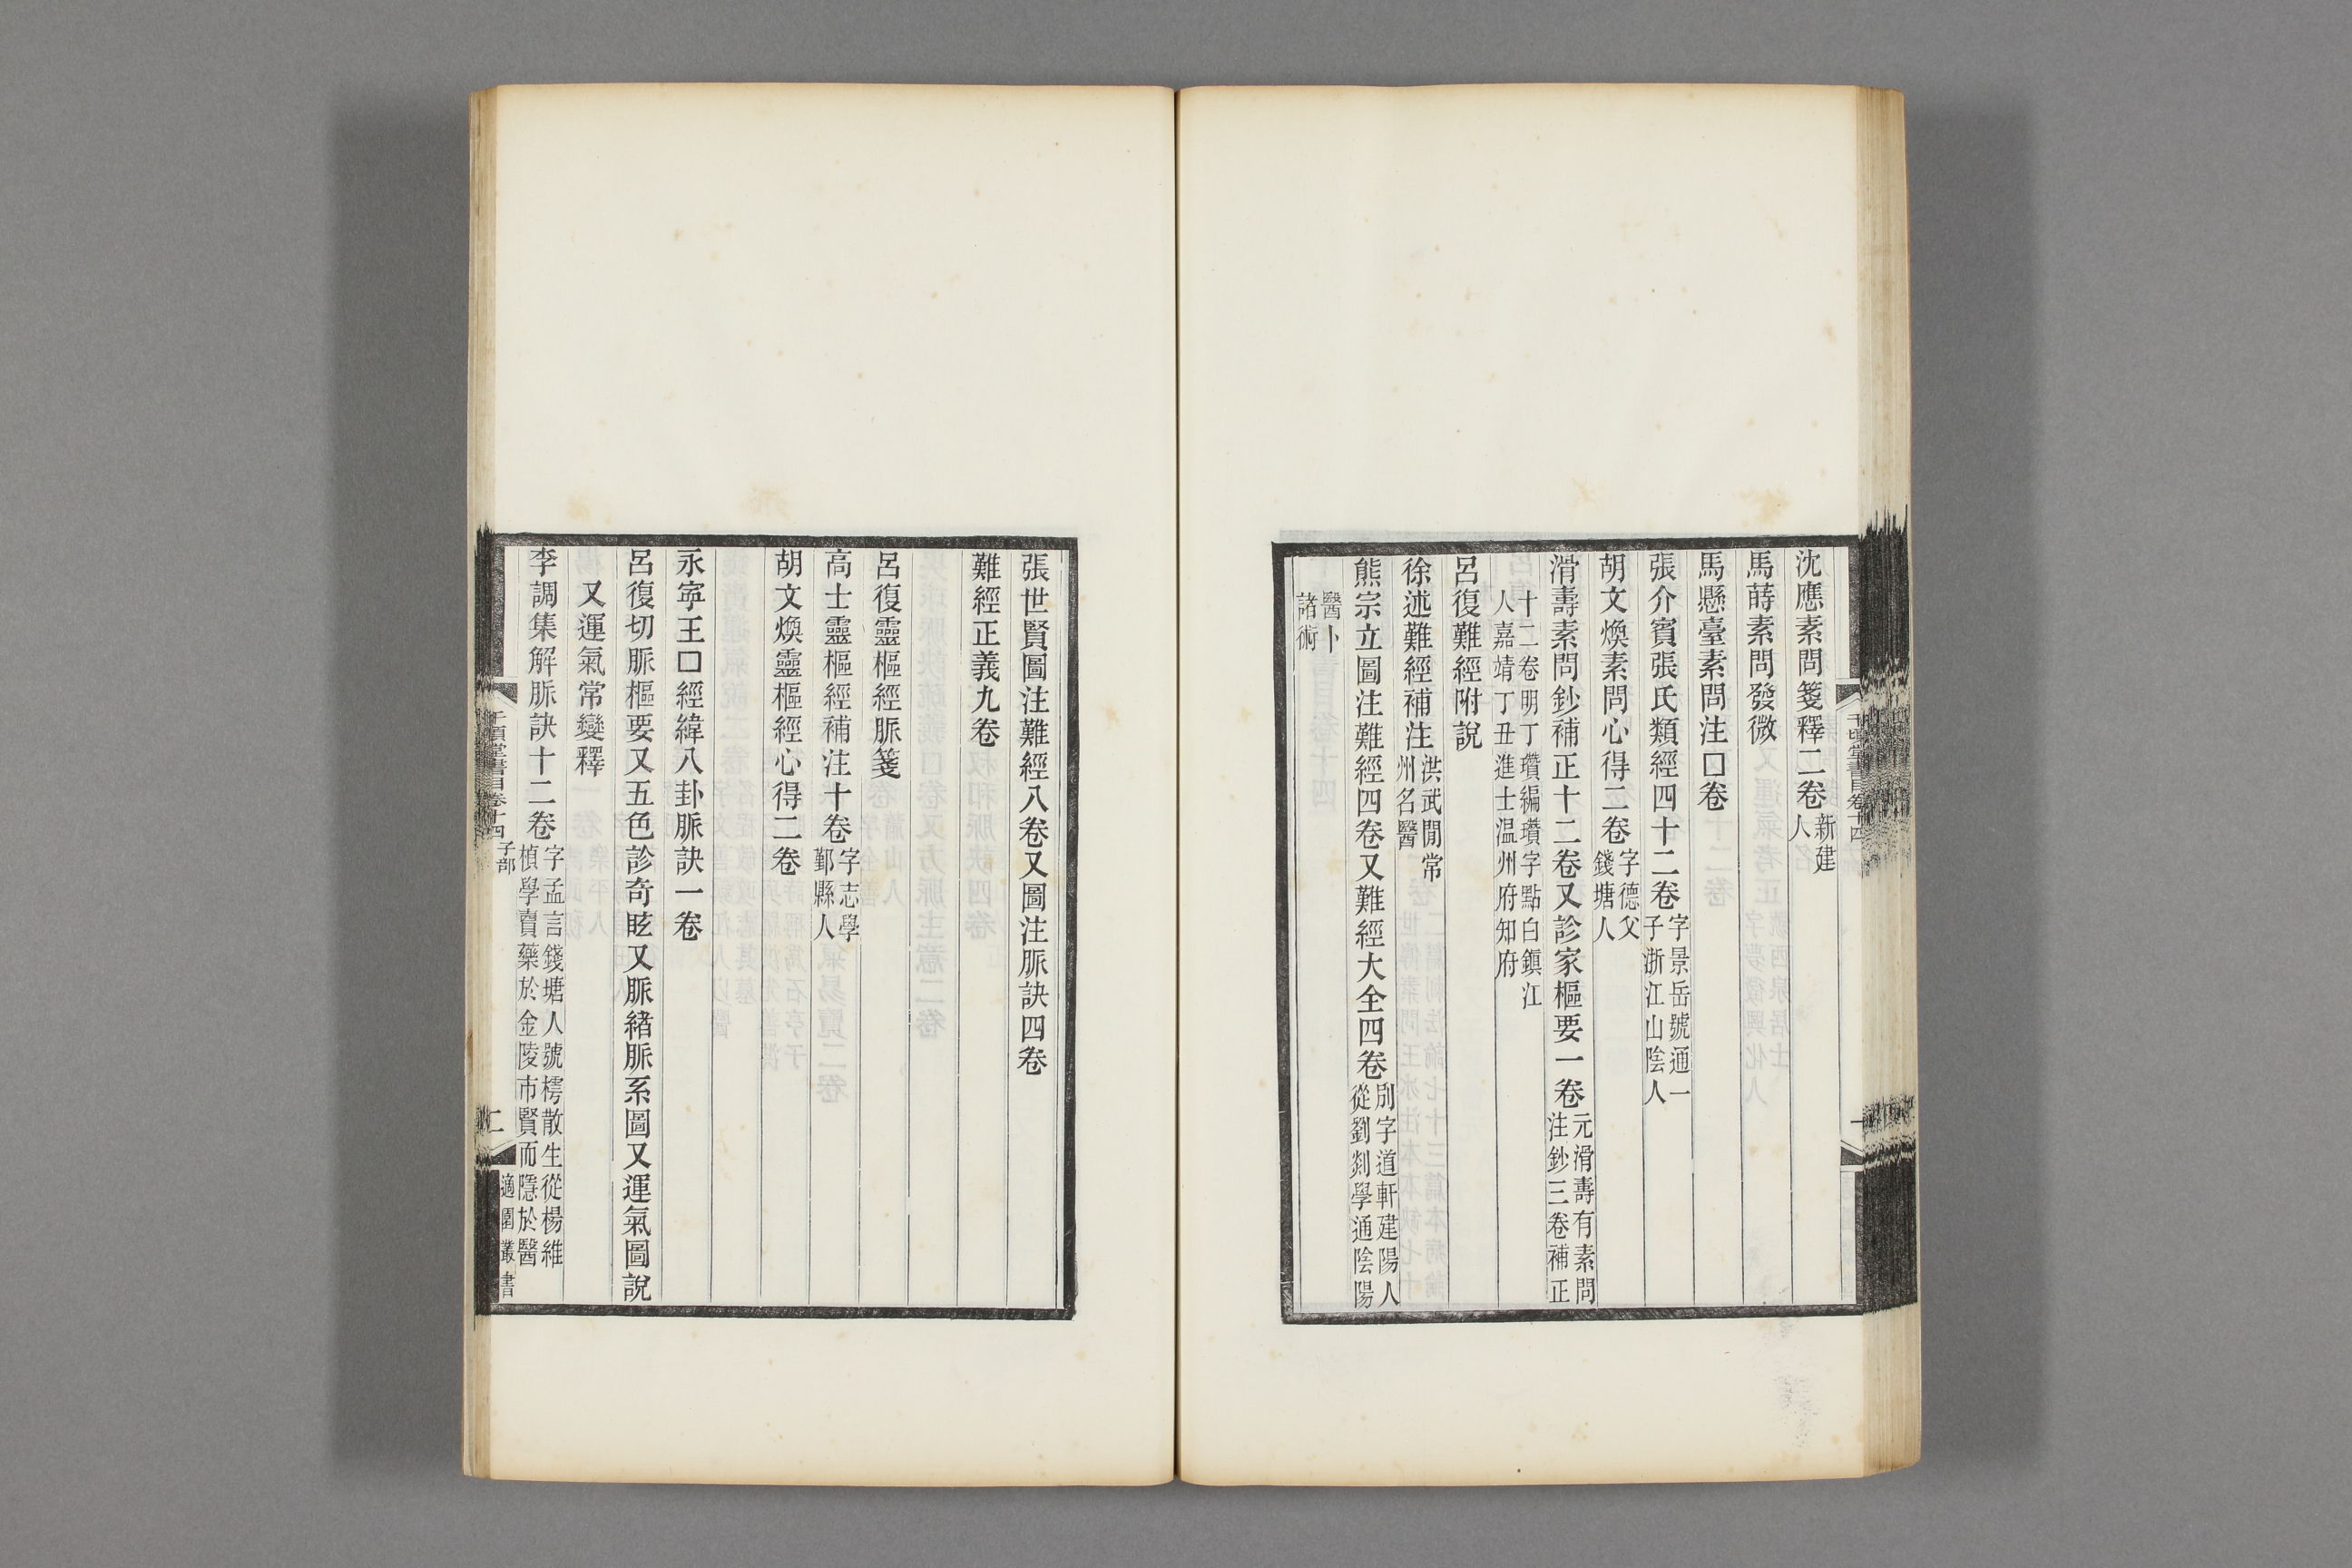 沈應素問箋釋二卷新建人
馬蒔素問發微
馬懸臺素問注□卷
張介賓張氏類經四十二卷字景岳號通一子浙江山陰人
胡文煥素問心得二卷字德父錢塘人
滑壽素問鈔補正十二卷又診家樞要一卷元滑壽有素問注鈔三卷補正
十二卷明丁瓚編瓚字點白鎭江人嘉靖丁丑進士温州府知府
呂復難經附說
徐述難經補注洪武閒常州名醫
熊宗立圖注難經四卷又難經大全四卷別字道軒建陽人從劉剡學通陰陽
醫卜諸術
張世賢圖注難經八卷又圖注脈訣四卷
難經正義九卷
呂復靈樞經脈箋
高士靈樞經補注十卷字志學鄞縣人
胡文煥靈樞經心得二卷
永寧王□經緯八卦脈訣一卷
呂復切脈樞要又五色診奇眩又脈緒脈系圖又運氣圖說
又運氣常變釋
李調集解脈訣十二卷字孟言錢塘人號樗散生從楊維楨學賣藥於金陵市賢而隱於醫
千頃堂書目卷十四
子部
二
適園叢書